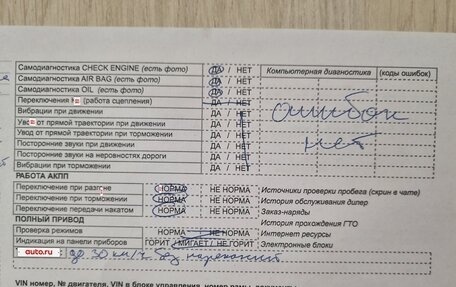 Самодиагностика CHECK ENGINE (есть фото) ДА / НЕТ Компьютерная диагностика (коды ошибок)
Самодиагностика AIR BAG (есть фото) ДА / НЕТ
Самодиагностика OIL (есть фото) ДА / НЕТ
Переключения (работа сцепления) ДА / НЕТ
Вибрации при движении ДА / НЕТ
Увод от прямой траектории при движении ДА / НЕТ
Увод от прямой траектории при торможении ДА / НЕТ
Посторонние звуки при движении ДА / НЕТ
Посторонние звуки на неровностях дороги ДА / НЕТ
Вибрации при торможении ДА / НЕТ
ошибок
нет
РАБОТА АКПП
Переключение при разгоне НОРМА НЕ НОРМА Источники проверки пробега (скрин в чате)
Переключение при торможении НОРМА НЕ НОРМА История обслуживания дилер
Переключение передачи накатом НОРМА НЕ НОРМА Заказ-наряды
ПОЛНЫЙ ПРИВОД История прохождения ГТО
Проверка режимов НОРМА НЕ НОРМА Интернет ресурсы
Индикация на панели приборов ГОРИТ / МИГАЕТ / НЕ ГОРИТ Электронные блоки
auto.ru до 30 км/ч без нареканий
VIN номер, № двигателя, VIN в блоке управления, номер рамы,